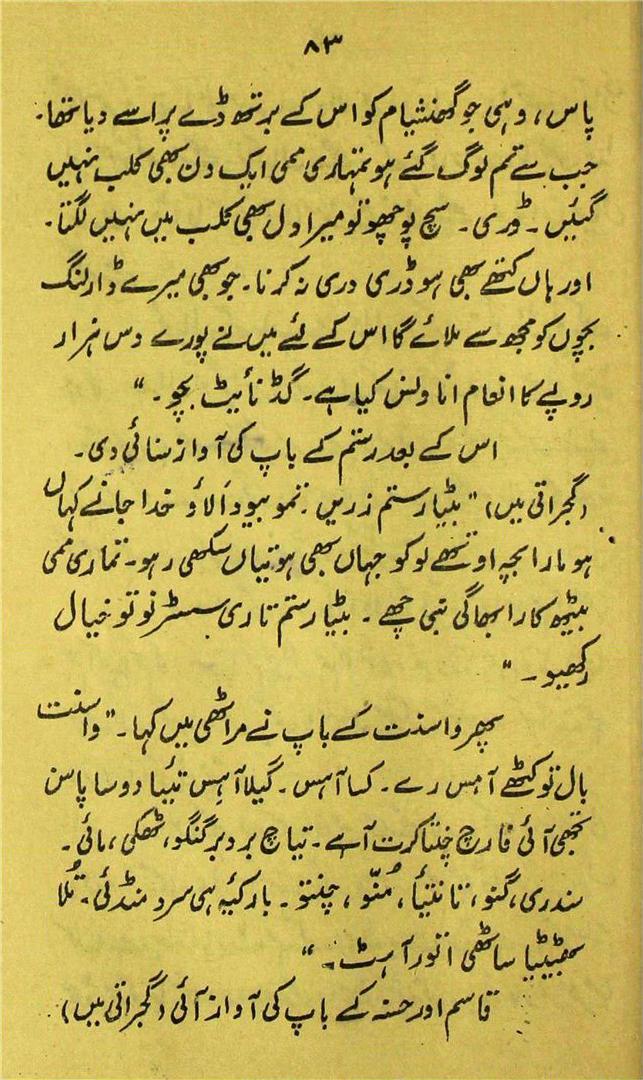 ۸۳
پاس، وہی جو گھنشیام کو اس کے برتھ ڈے پر اسے دیا تھا۔
جب سے تم لوگ گئے ہو تمہاری ممی ایک دن بھی کلب نہیں
گئیں۔ ڈوری۔ سچ پوچھو تو میرا دل بھی کلب میں نہیں لگتا۔
اور ہاں کتھے بھی ہو ڈری دری نہ کرنا۔ جو بھی میرے ڈارلنگ
بچوں کو مجھ سے ملائے گا اس کے لئے میں نے پورے دس ہزار
روپے کا انعام اناونس کیا ہے۔ گڈ نائیٹ بچو۔ "
اس کے بعد رستم کے باپ کی آواز سنائی دی۔
(گجراتی میں) "بیٹیا رستم زریں۔ تمو بیود آلاؤ خدا جانے کہاں
ہو مارا بچہ او تمھے لوکو جہاں بھی ہو تیاں سکھی رہو۔ تماری ممی
بیٹھ کارا بھاگی نبی چھے۔ بیٹیا رستم تاری سسٹر نو تو خیال
رکھیو۔ "
پھر واسنت کے باپ نے مراٹھی میں کہا۔ "واسنت
بال تو کٹھے آہس رے۔ کسا آہس۔ گیلا آہس تیئیا دوسا پاسن
تجھی آئی فارچ چنتا کرت آہے۔ تیاچ بردبر گنگو، ٹھکی، مائی۔
سندری، گنو، تانتیأ، مُنّو، چنتو۔ بارکیہ ہی سرد منڈئی۔ تُلا
بھیٹیٹیا ساٹھی اتور آہٹ۔ "
قاسم اور حسنہ کے باپ کی آواز آئی (گجراتی میں)